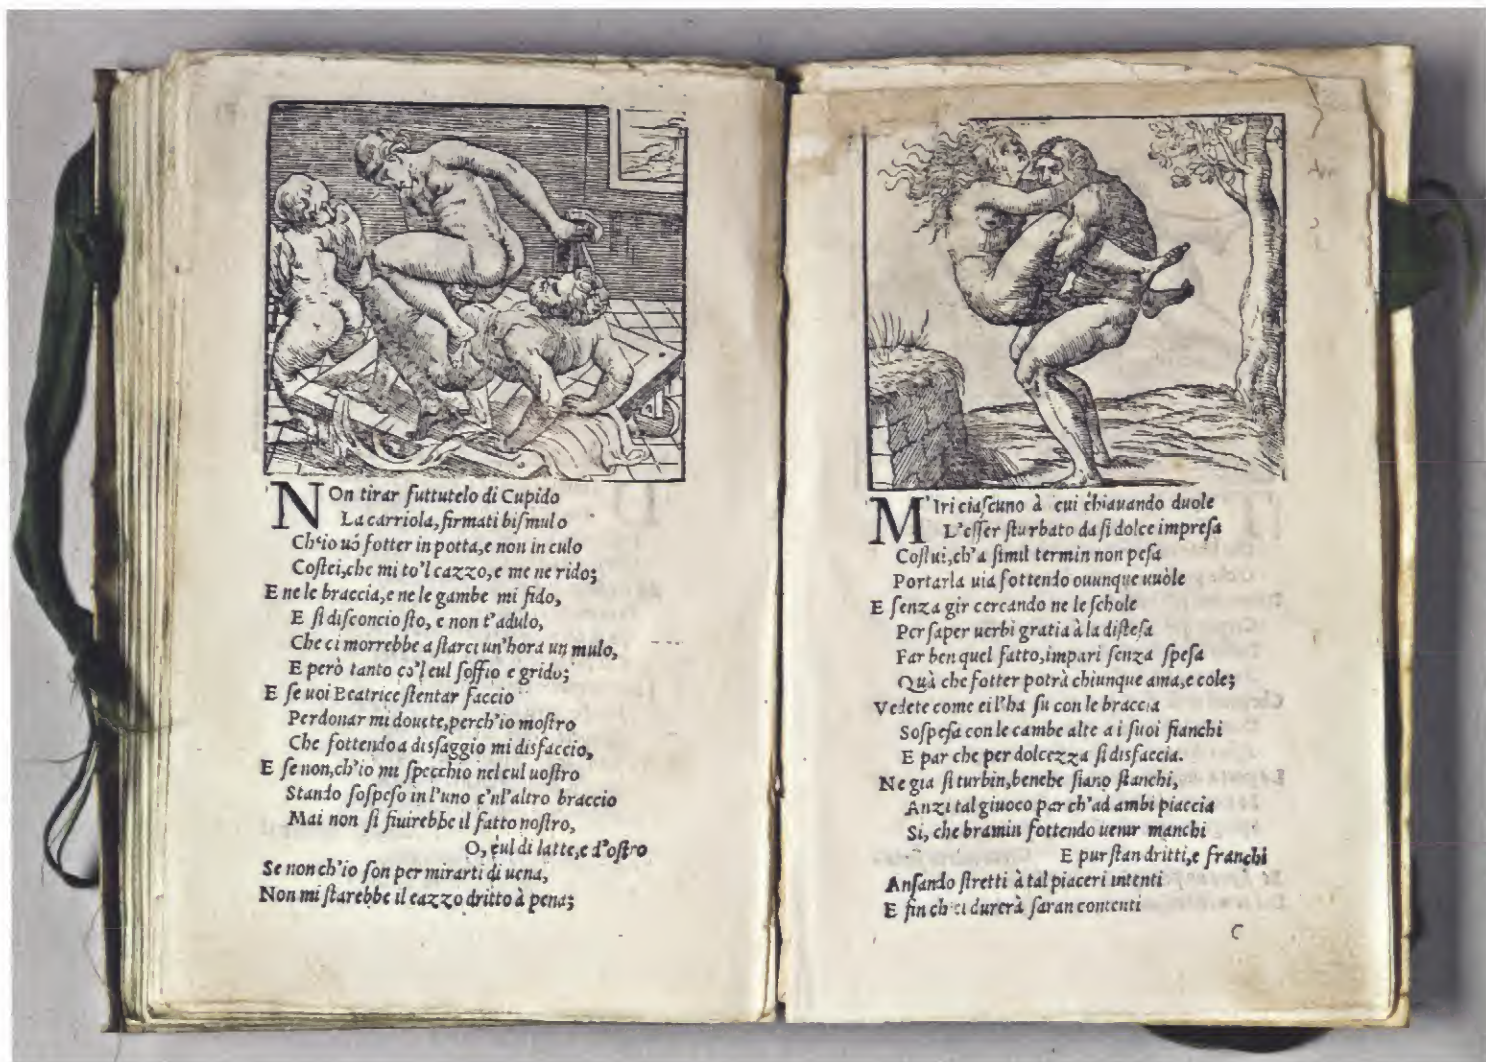 NOn tirar futtutelo di Cupido
La carriola, firmati biſmulo
Ch'io uò fotter in potta, e non in culo
Coſtei, che mi to'l cazzo, e me ne rido;
E ne le braccia, e ne le gambe mi fido,
E ſi diſconcio ſto, e non t'adulo,
Che ci morrebbe a ſtarci un'hora un mulo,
E però tanto co'l cul ſoffio e grido;
E ſe uoi Beatrice ſtentar faccio
Perdonar mi douete, perch'io moſtro
Che fottendo a diſſaggio mi disfaccio,
E ſe non, ch'io mi ſpecchio nel cul uoſtro
Stando ſoſpeſo in l'uno e'n l'altro braccio
Mai non ſi fiuirebbe il fatto noſtro,
O, cul di latte, e d'oſtro
Se non ch'io ſon per mirarti di uena,
Non mi ſtarebbe il cazzo dritto à pena;
M'Iri ciaſcuno à cui chiauando duole
L'eſſer ſturbato da ſi dolce impreſa
Coſtui, ch'a ſimil termin non peſa
Portarla uia fottendo ouunque uuòle
E ſenza gir cercando ne le ſchole
Per ſaper uerbi gratia à la diſteſa
Far ben quel fatto, impari ſenza ſpeſa
Quà che fotter potrà chiunque ama, e cole;
Vedete come ei l'ha ſu con le braccia
Soſpeſa con le cambe alte a i ſuoi fianchi
E par che per dolcezza ſi disfaccia.
Ne gia ſi turbin, benche ſiano ſtanchi,
Anzi tal giuoco par ch'ad ambi piaccia
Si, che bramin fottendo uenir manchi
E pur ſtan dritti, e franchi
Anſando ſtretti à tal piaceri intenti
E fin ch'ei durerà ſaran contenti
C